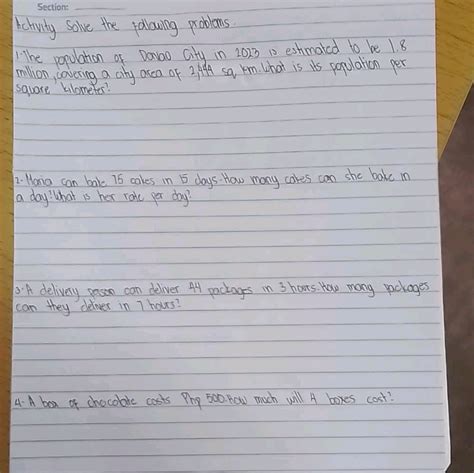 Section:
Activity Solve the following problems.
1. The population of Davao City in 2023 is estimated to be 1.8
million, covering a city area of 2,444 sq. km. What is its population per
square kilometer?
2. Maria can bake 75 cakes in 15 days. How many cakes can she bake in
a day? What is her rate per day?
3. A delivery person can deliver 44 packages in 3 hours. How many packages
can they deliver in 7 hours?
4. A box of chocolate costs Php 500. How much will 4 boxes cost?